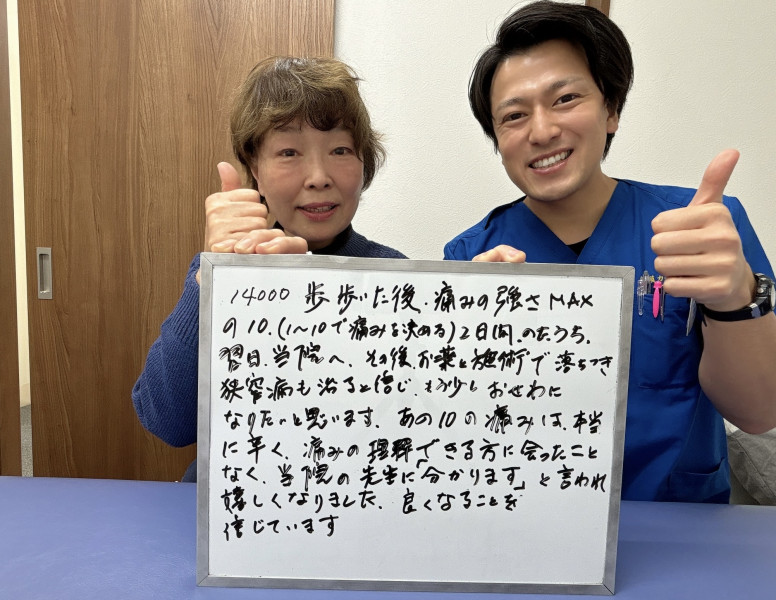 14000 歩歩いた後、痛みの強さMAX
の10.(1〜10で痛みを決める)2日間、のたうち、
翌日、当院へ、その後、お薬と施術で落ちつき
狭窄病も治ると信じ、もう少しおせわに
なりたいと思います、あの10の痛みは、本当
に辛く、痛みの理解できる方に会ったこと
なく、当院の先生に「分かります」と言われ
嬉しくなりました、良くなることを
信じています